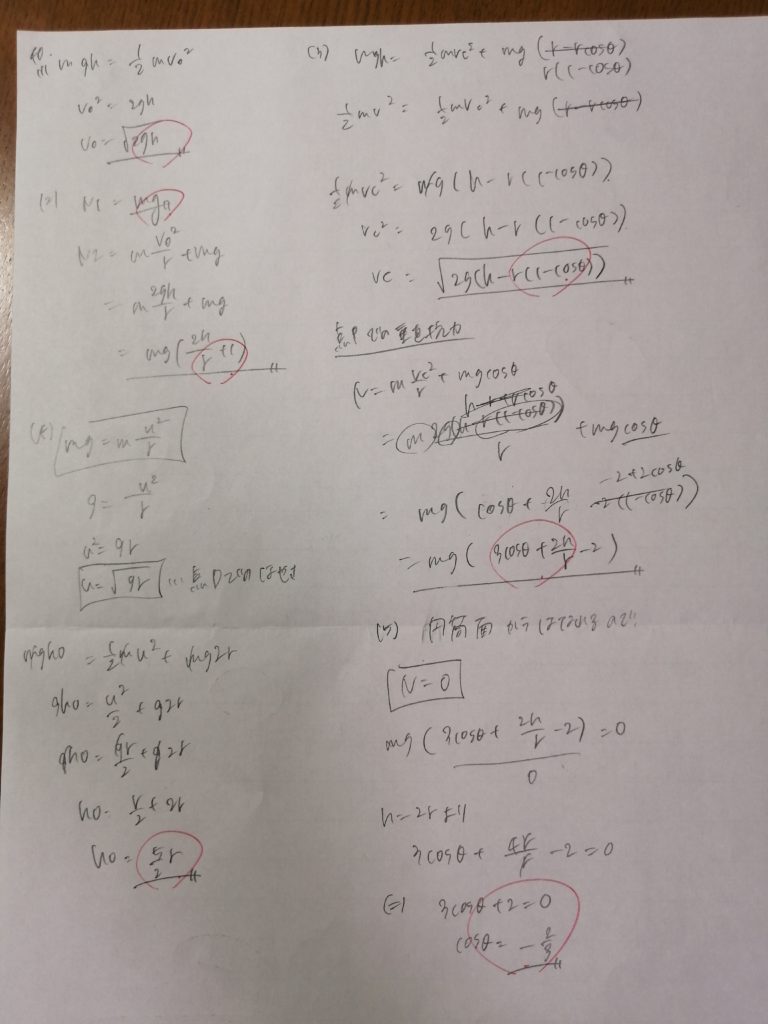 (1) mgh = 1/2 mv₀²
v₀² = 2gh
v₀ = √2gh
(2) N1 = mg
N2 = m v₀²/r + mg
= m 2gh/r + mg
= mg(2h/r + 1)
mg = m u²/r
g = u²/r
u² = gr
u = √gr
mgh₀ = 1/2 mu² + mg2r
gh₀ = u²/2 + g2r
gh₀ = gr/2 + g2r
h₀ = r/2 + 2r
h₀ = 5/2 r
(3) mgh = 1/2 mvc² + mg (r-rcosθ)
r(1-cosθ)
1/2 mv² = 1/2 mvc² + mg (r-rcosθ)
1/2 mvc² = mg(h-r(1-cosθ))
vc² = 2g(h-r(1-cosθ))
vc = √2g(h-r(1-cosθ))
点Pでの垂直抗力
N = m vc²/r + mgcosθ
+mgcosθ
-2+2cosθ
= mg( cosθ + 2h/r -2(1-cosθ))
= mg( 3cosθ + 2h/r - 2)
円筒面からはなれるので
N = 0
mg( 3cosθ + 2h/r - 2) = 0
0
h = 2rより
3cosθ + 4r/r - 2 = 0
3cosθ + 2 = 0
cosθ = - 2/3